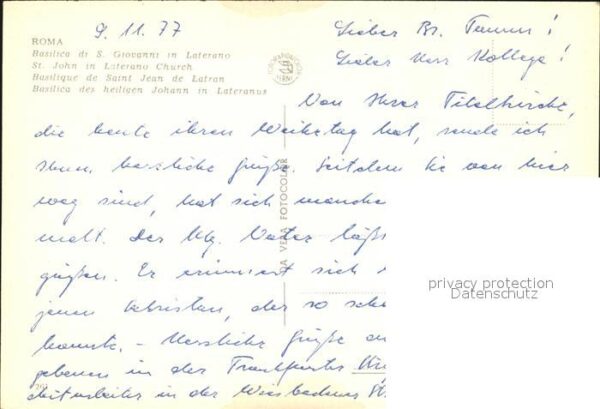 9.11.77
ROMA
Basilica di S. Giovanni in Laterano
St. John in Laterano Church
Basilique de Saint Jean de Latran
Basilica des heiligen Johann in Lateranus
Lieber Br.
Lieber Herr Kollege!
Von Ihrer Titelkirche,
die heute ihren Weihetag hat, sende ich
Ihnen herzliche Grüße. Seitdem Sie von hier
weg sind, hat sich manches
Der Hlg. Vater läßt
grüßen. Er erinnert sich
jenen Sakristan, der so
konnte. - Herzliche Grüße an
in der Frankfurter
Mitarbeiter in der Wiesbadener
VERA FOTOCOLOR
privacy protection
Datenschutz